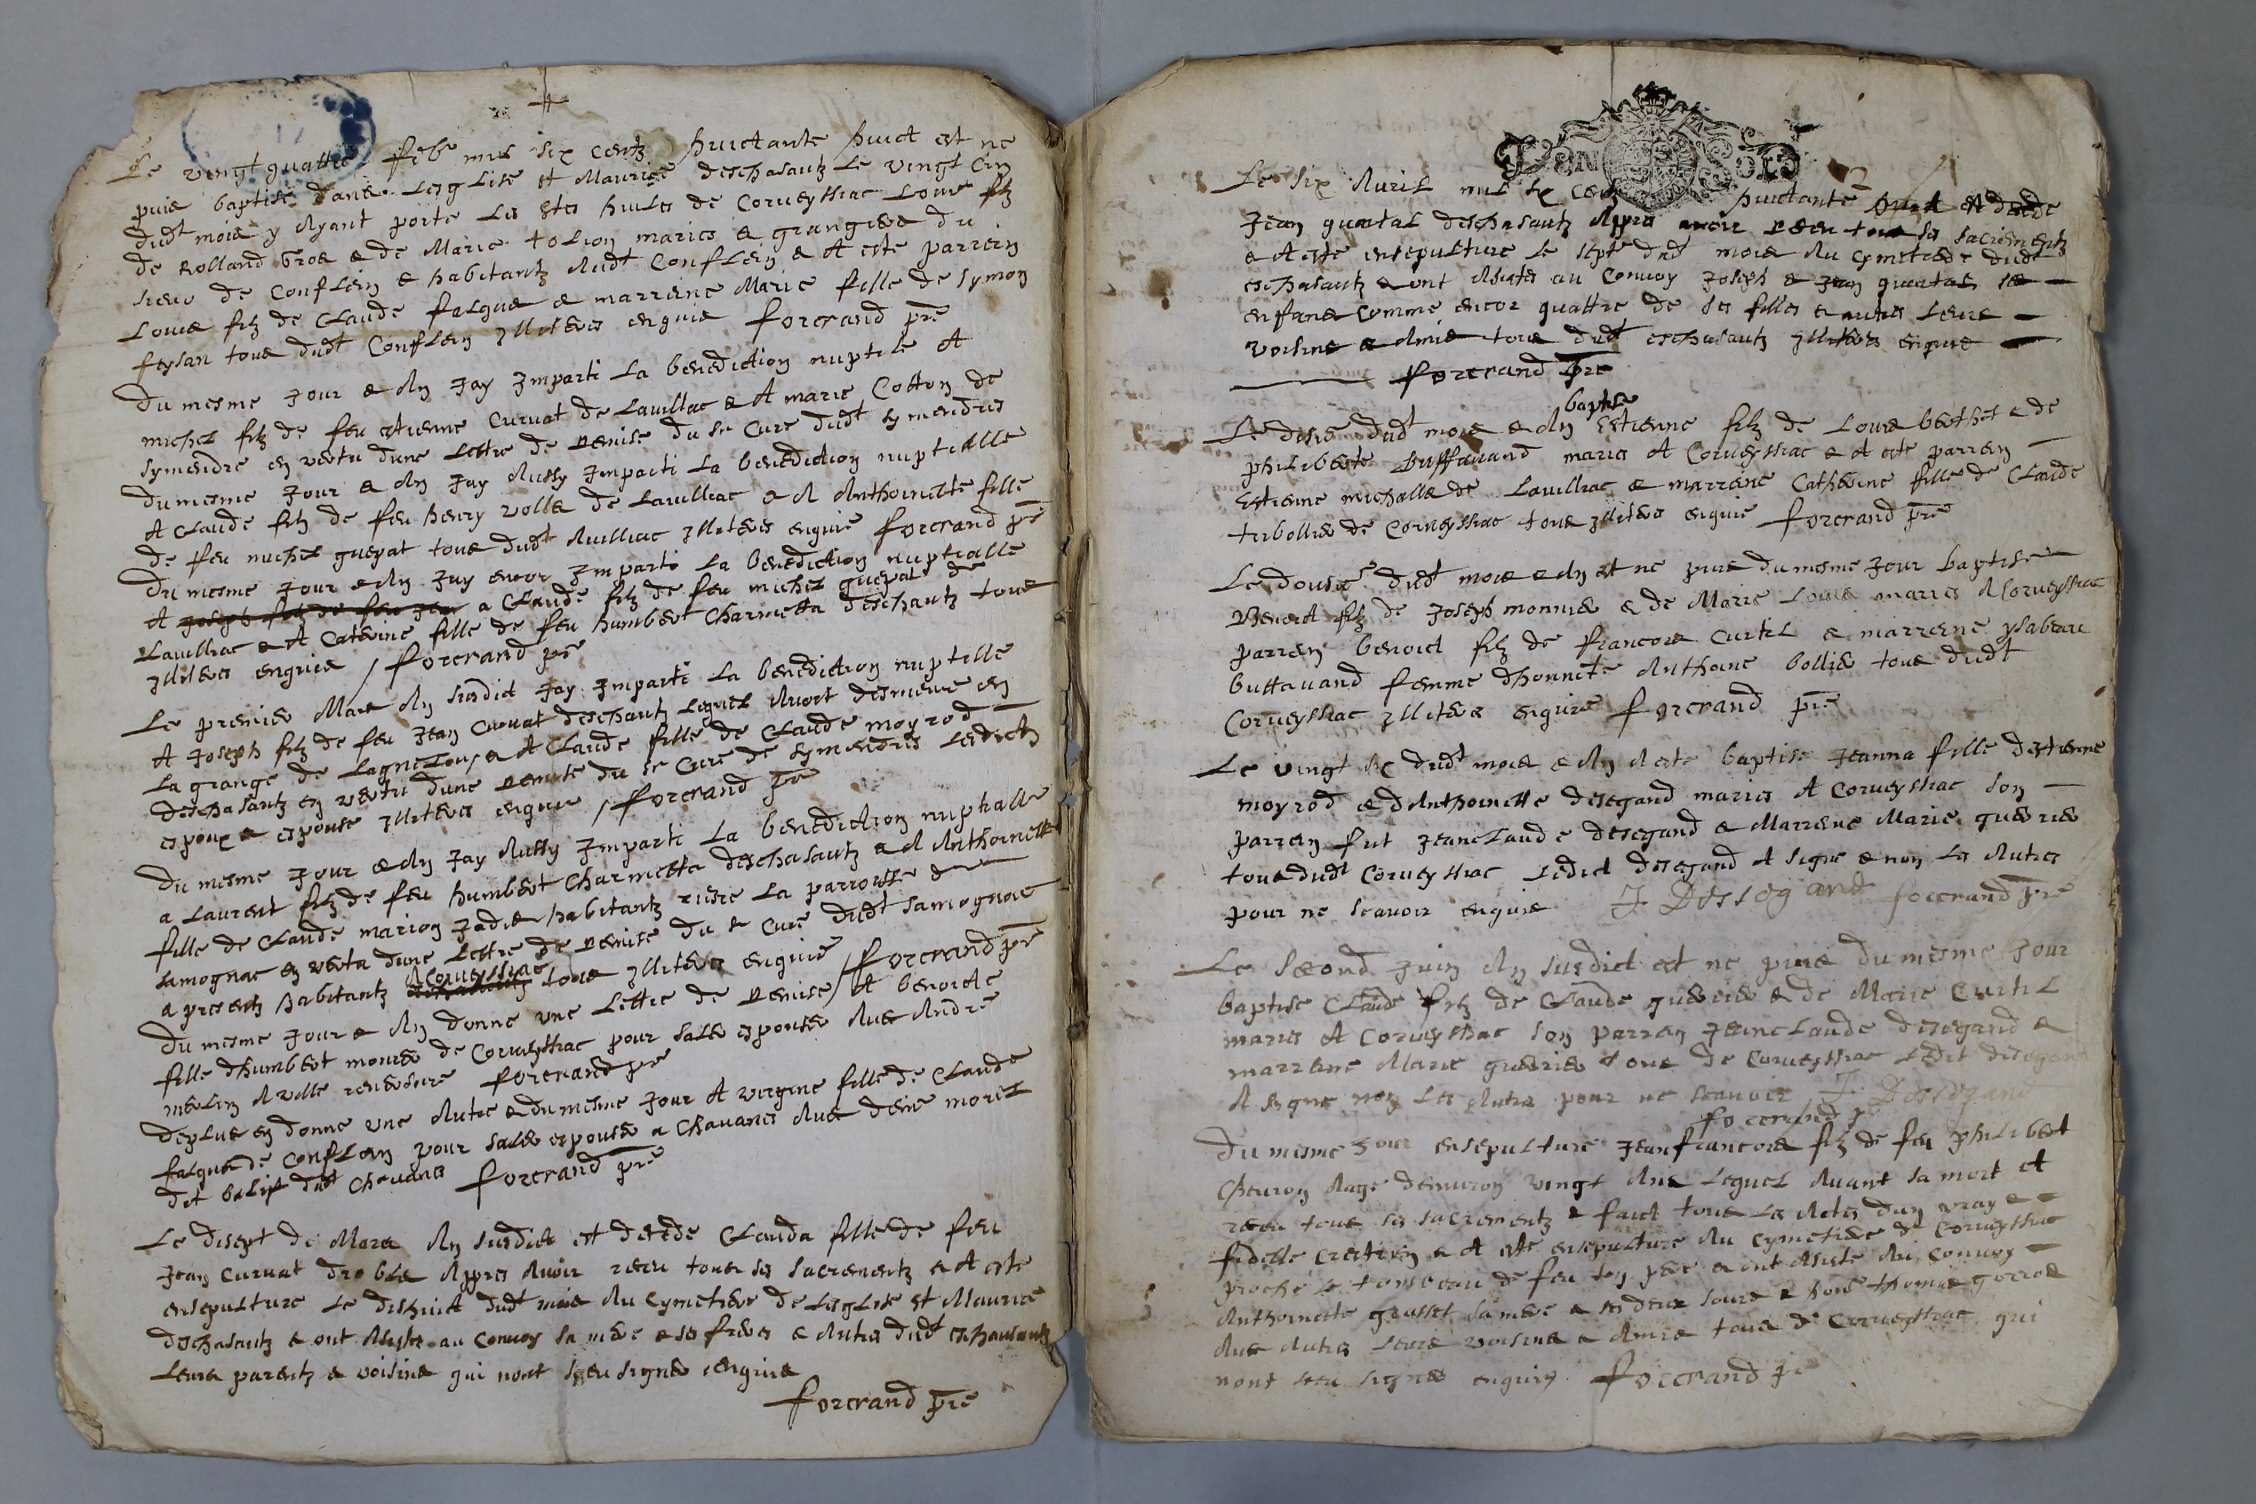 Le vingt quattre feb mil six centz huictante huict est ne
puis baptise dans lesglise st Maurice deschasautz le vingt cin
dudt mois y ayant porte les stes huiles de Corveyssiac Louis filz
de Rolland bros & de Marie tolion maries & grangiers du
sieur de Conflein & habitantz audt Conflein & A este parrein
Louis filz de Claude falque & marrene Marie fille de Symon
feysan tous dudt Conflein Illiteres enquis forcrand pre
Du mesme Jour & An Jay Imparti La benediction nuptile A
michel filz de feu etienne Curvat de Lavilliac & A marie Cotton de
Symendre en vertu dune Lettre de Remise du Sr Cure dudt Symendres
Du mesme Jour & An Jay Aussy Imparti La benediction nuptialle
A Claude filz de feu henry volle de Lavilliac & A Anthoinette fille
de feu michel guepat tous dudt Avilliac Illiteres enquis forcrand pre
Du mesme Jour & An Jay encor Imparti La benediction nuptialle
A Joseph filz de feu Jean a Claude filz de feu michel guepat de
Lavilliac & A Caterine fille de feu humbert Charnetta deschautz tous
Illiteres enquis / forcrand pre
Le premier Mars An susdict Jay Imparti La benediction nuptille
A Joseph filz de feu Jean Curvat deschautz Lequel Avoit desmeure en
La grange de Lagnelou & A Claude fille de Claude moyrod
deschasautz en vertu dune Remise du Sr Cure de Symendres Lesdictz
espoux & espouse Illiteres enquis / forcrand pre
Du mesme Jour & An Jay Aussy Imparti La benediction nuptialle
a Laurent filz de feu humbert Charnetta deschasautz & A Anthoinette
fille de Claude marion Jadis habitantz riere La parroisse de
Samognac en vertu dune Lettre de Remise du Sr Cure dudt Samognac
A Corveyssiac
a presentz habitantz tous Illiteres enquis / forcrand pre
Du mesme Jour & An donne une Lettre de Remise / A benoicte
fille dhumbert monier de Corveyssiac pour saler espouser Avec Andre
merlin A ville reversure forcrand pre
Deplus en donne une Autre & du mesme Jour A virgine fille de Claude
falque de Conflein pour saler espouser a Chavanes Avec denis morel
dit dudt Chavanes forcrand pre
Le disept de Mars An susdict est decede Clauda fille de feu
Jean Curvat Appres Avoir receu tous ses sacrementz & A este
ensepulture Le dishuict dudt mois Au Cymetiere de Lesglise st Maurice
deschasautz & ont Asistes au Convoy sa mere & ses freres & Autres dudt eschausautz
Leurs parentz & voisins qui nont sceu signer enquis
forcrand pre
DEN SOLS
Le six Avril mil six cent huictante huict est decede
Jean quartal deschasautz Appres avoir receu tous ses sacrementz
& A este ensepulture le sept dudt mois Au Cymetiere dudt
eschasautz & ont Asistes au Convoy Joseph & Jean quartal ses
enfans Comme encor quattre de ses filles & autres Leurs
voisins & Amis tous dudt eschasautz Illiteres enquis
forcrand pre
baptise
Le disie dudt mois & An Estienne filz de Louis berthet & de
philiberte buffavand maries A Corveyssiac & A este parrein
Estienne michalle de Lavilliac & marrene Catherine fille de Claude
tribollier de Corveyssiac tous Illiteres enquis forcrand pre
Le dousie dudt mois & An est ne puis du mesme Jour baptise
Benoict filz de Joseph monnier & de Marie Louis maries A Corveyssiac
parrein benoict filz de francois Curtil & marrene ysabeau
buttavand femme dhonnete Anthoine bollier tous dudt
Corveyssiac Illiteres enquis forcrand pre
Le vingt six dudt mois & An A este baptise Jeanna fille destienne
moyrod & dAnthoinette desegand maries A Corveyssiac son
parrein fut Jeanclaude desegand & Marrene Marie guerrier
tous dudt Corveyssiac Ledict desegand A signe & non Les Autres
pour ne scavoir enquis J Dessogand forcrand pre
Le second Juin An susdict est ne puis du mesme Jour
baptise Claude filz de Claude guerrier & de Marie Curtil
maries A Corveyssiac son parrein Jeanclaude desegand &
marrene Marie guerrier tous de Corveyssiac Ledit desegand
A signe non Les Autres pour ne scavoir J Dessogand
forcrand pr
Du mesme Jour ensepulture Jeanfrancois filz de feu philibert
Chevron Age denviron vingt Ans Lequel Avant sa mort A
receu tous ses sacrementz & faict tous Les Actes dun vray &
fidelle Crestien & A este ensepulture Au Cymetiere de Corveyssiac
proche le tombeau de feu son pere & ont Asiste Au Convoy
Anthoinette grasset sa mere & ses deux soeurs & thomas gorros
Avec Autres Leurs voisins & Amis tous de Corveyssiac qui
nont sceu signer enquis forcrand pre